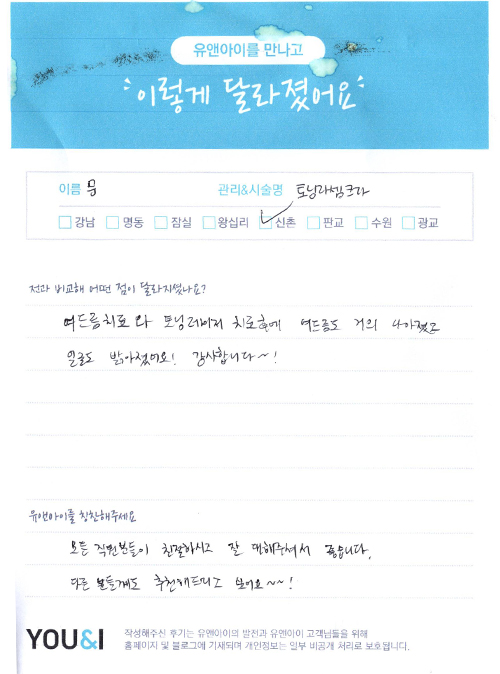 유앤아이를 만나고
이렇게 달라졌어요
이름 문 관리&시술명 토닝라셈크라
강남 명동 잠실 왕십리 신촌 판교 수원 광교
전과 비교해 어떤 점이 달라지셨나요?
여드름치료와 토닝레이저 치료후에 여드름도 거의 나아졌고
얼굴도 밝아졌어요! 감사합니다~!
유앤아이를 칭찬해주세요
모든 직원분들이 친절하시고 잘 대해주셔서 좋습니다.
다른 분들께도 추천해드리고 싶어요~~!
YOU&I 작성해주신 후기는 유앤아이의 발전과 유앤아이 고객님들을 위해
홈페이지 및 블로그에 기재되며 개인정보는 일부 비공개 처리로 보호됩니다.